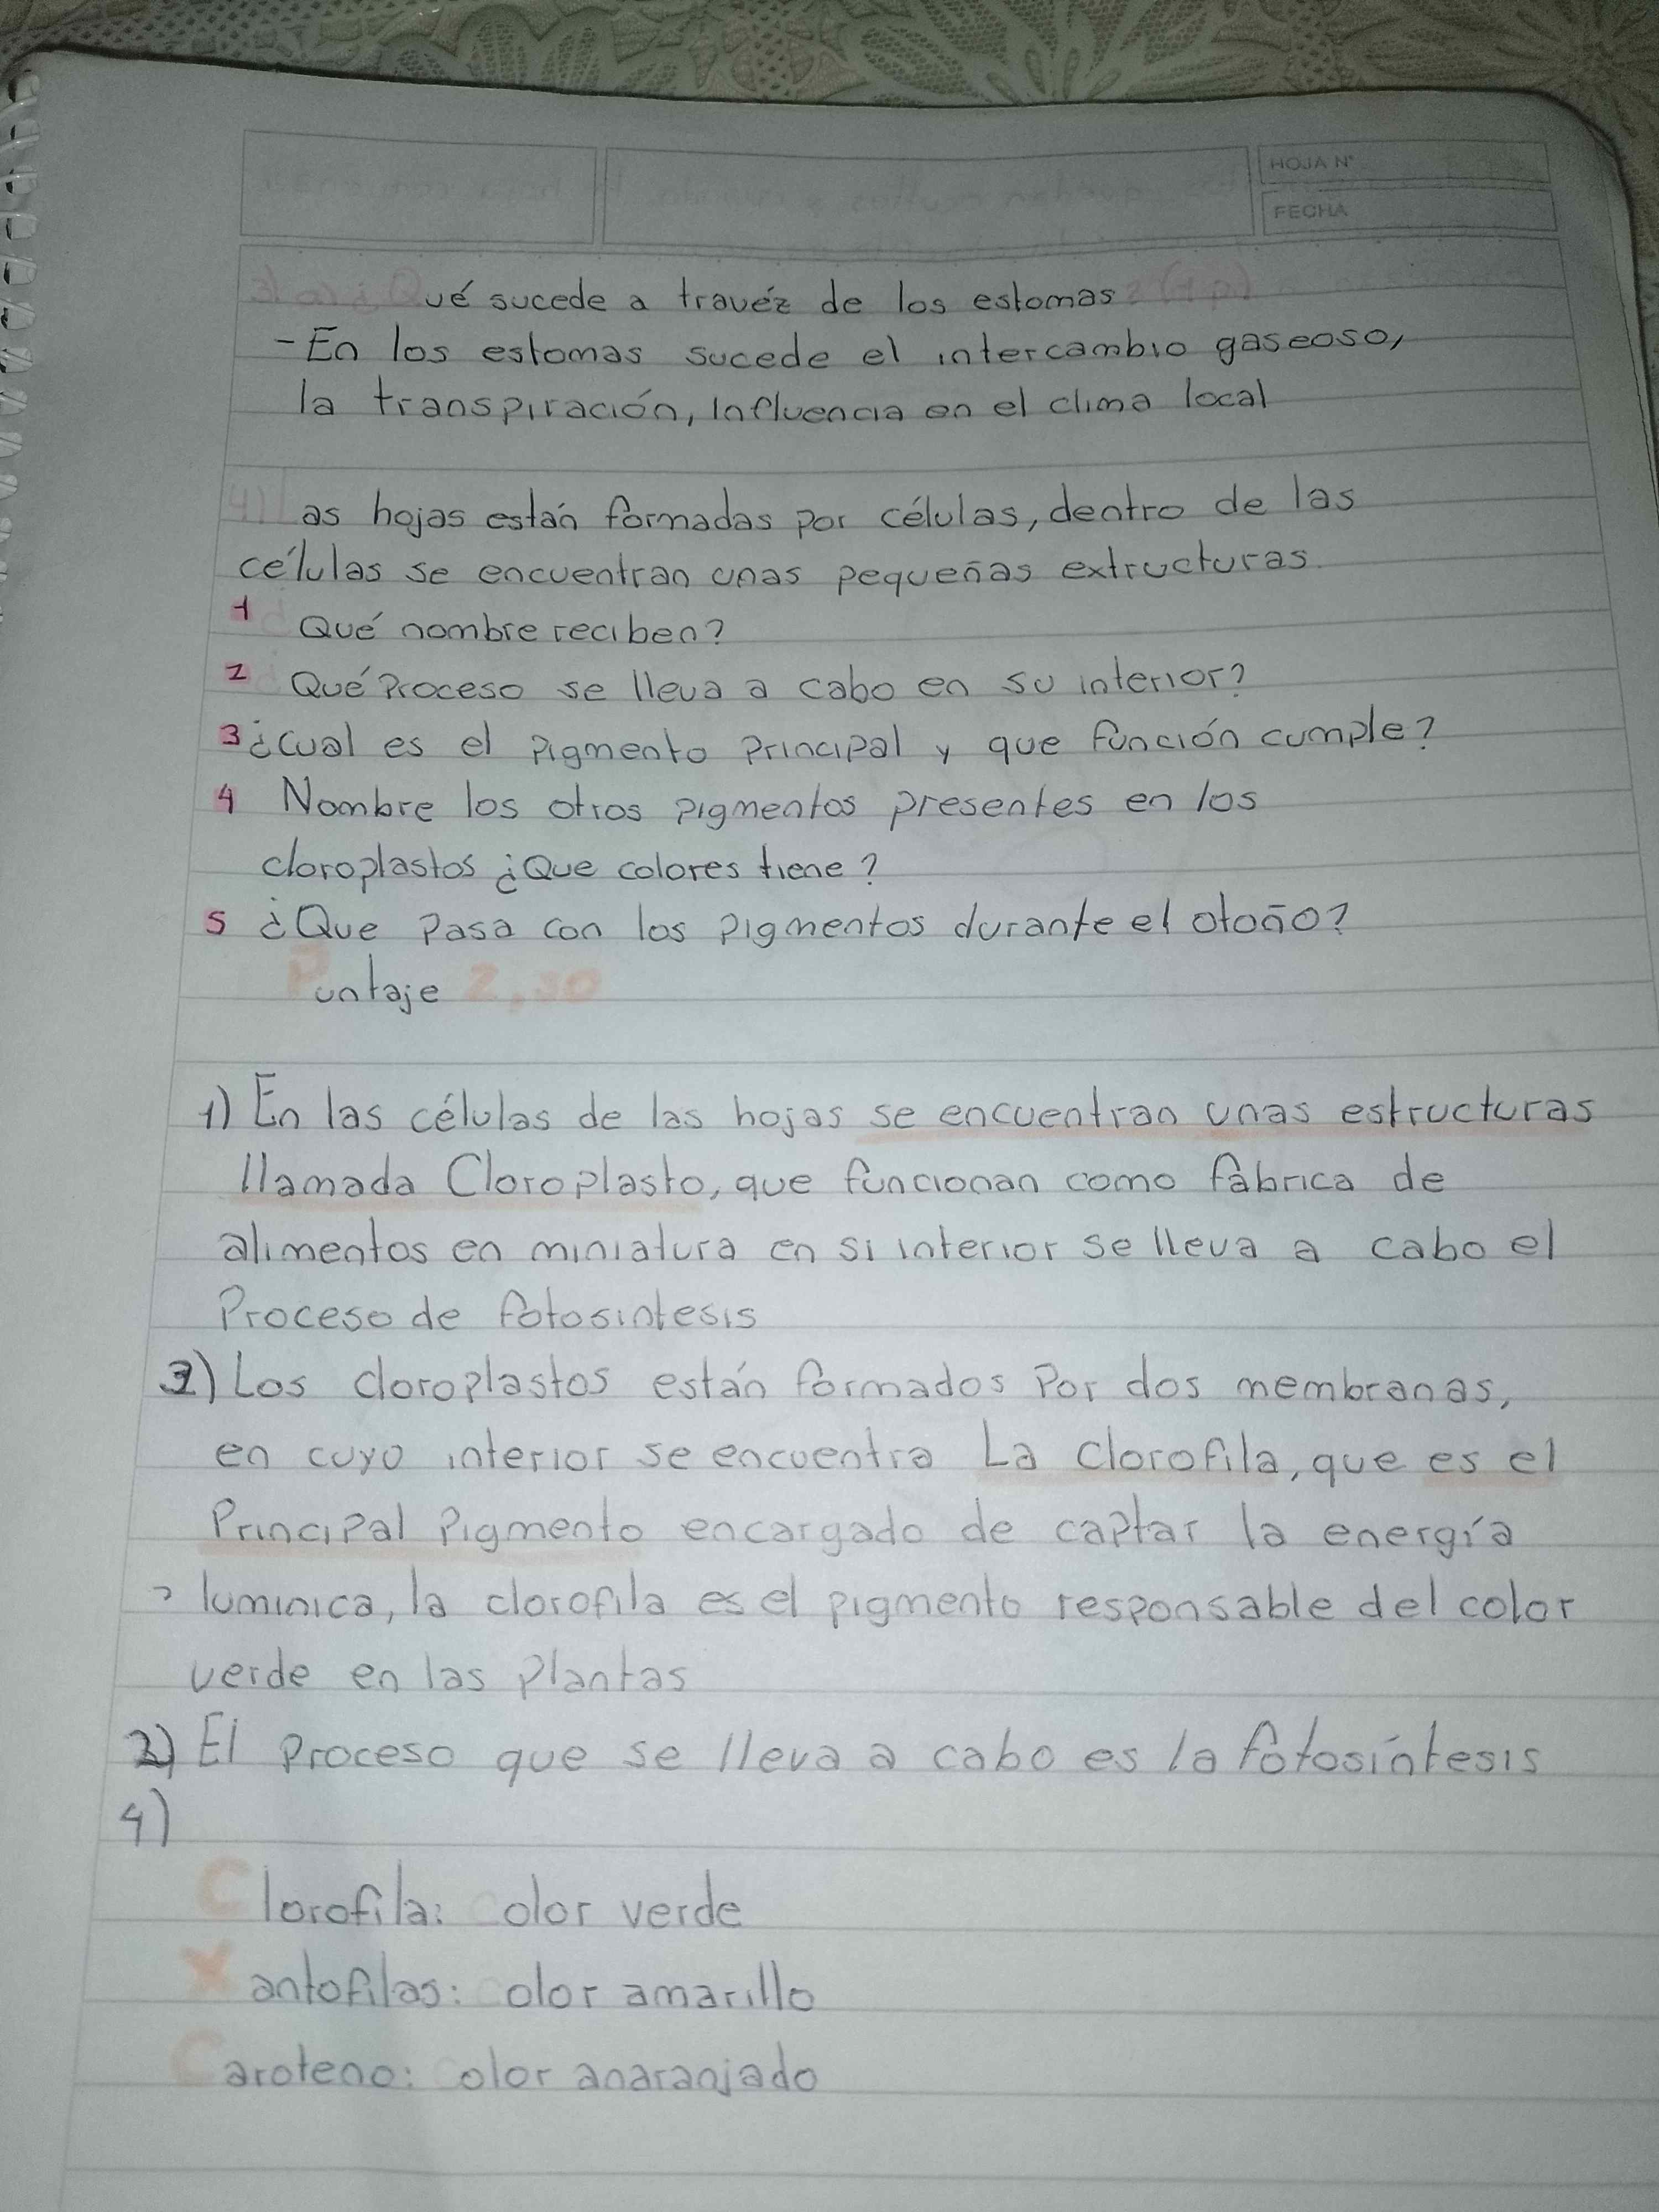 HOJA N°
FECHA
3) a) ¿Qué sucede a travéz de los estomas? (1 p)
- En los estomas sucede el intercambio gaseoso,
la transpiración, Influencia en el clima local
4) Las hojas están formadas por células, dentro de las
células se encuentran unas pequeñas extructuras.
1 Qué nombre reciben?
2 Qué Proceso se lleva a cabo en su interior?
3 ¿Cual es el Pigmento Principal y que función cumple?
4 Nombre los otros pigmentos presentes en los
cloroplastos ¿Que colores tiene?
5 ¿Que Pasa con los pigmentos durante el otoño?
Puntaje 2,50
1) En las células de las hojas se encuentran unas estructuras
llamada Cloroplasto, que funcionan como fábrica de
alimentos en miniatura en si interior se lleva a cabo el
Proceso de fotosintesis
3) Los cloroplastos están formados Por dos membranas,
en cuyo interior se encuentra La Clorofila, que es el
Principal Pigmento encargado de captar la energía
luminica, la clorofila es el pigmento responsable del color
verde en las plantas
2) El proceso que se lleva a cabo es la fotosíntesis
4)
Clorofila: Color verde
Xantofilas: Color amarillo
Caroteno: Color anaranjado